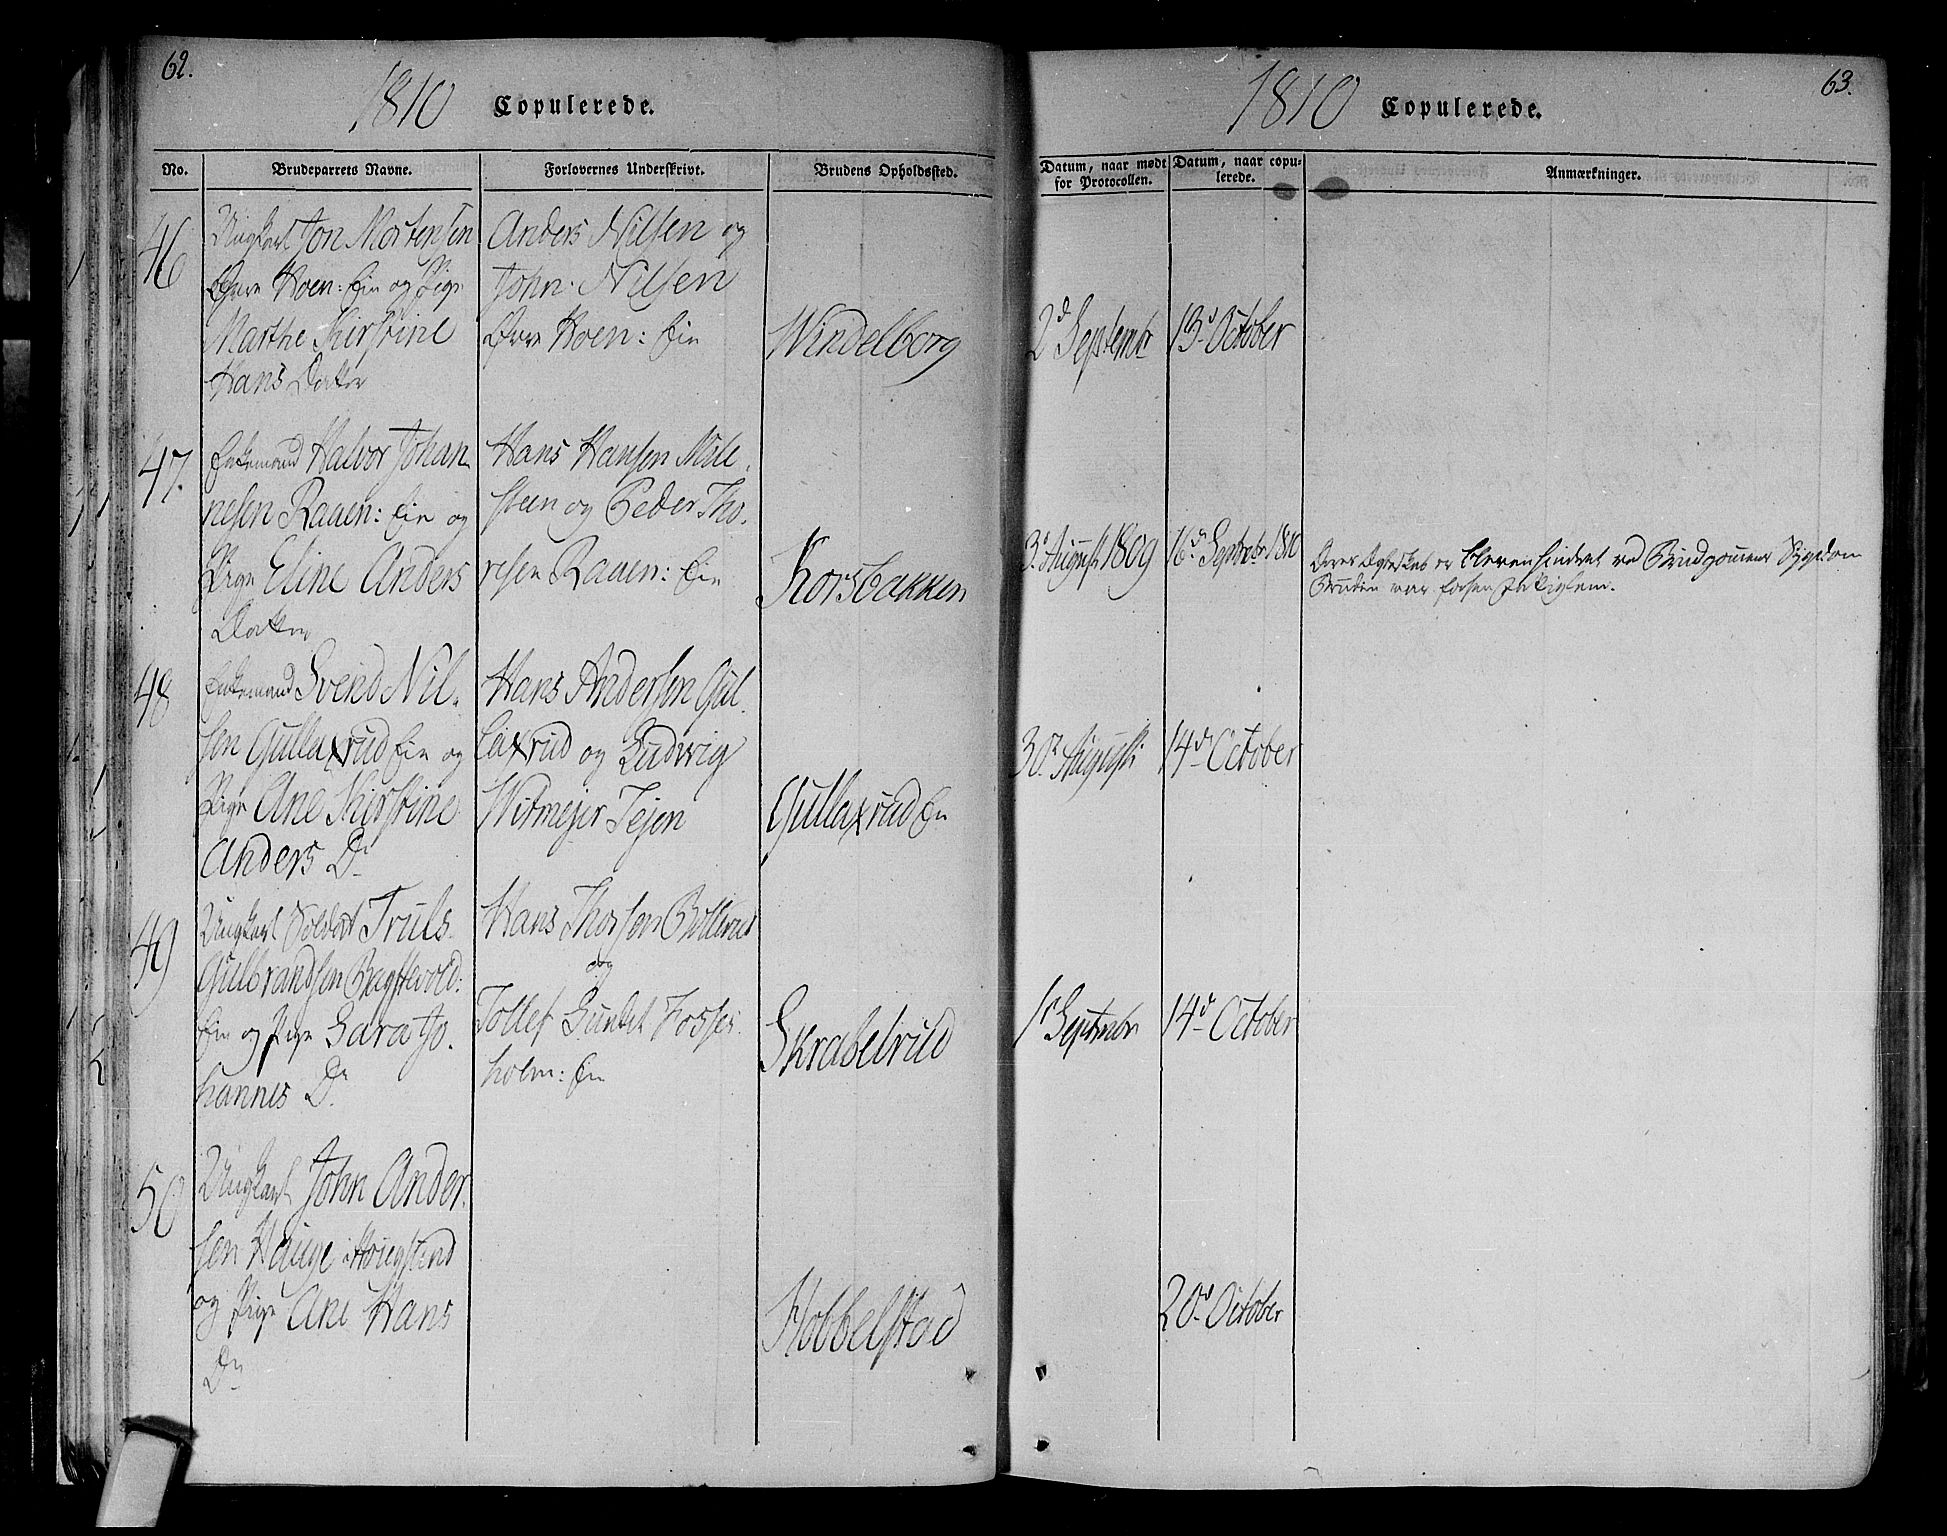 62.
1810 Copulerede.
No.
Brudeparrets Navne.
Forlovernes Underskrivt.
Brudens Opholdssted.
46
Ungkarl Jon Mortensen
Øvre Hoen: Eie og Pige
Marthe Kirstine
Hans Datter
Anders Nilsen og
John Nilsen
Øvre Hoen: Eie
Windelborg
47.
Enkemand Halvor Johan
nesen Raaen: Eie og
Pige Eline Anders
Datter
Hans Hansen Mile
steen og Peder Tho.
resen Raaen: Eie
Korsbakken
48
Enkemand Svend Nil.
sen Gullaxrud Eie og
Pige Ane Kirstine
Anders Dr
Hans Andersen Gul
laxrud og Ludvig
Witmejer Tejen
Gullaxrud Eie
49
Ungkarl Soldat Truls
Gulbrandsen Bagstevold:
Eie og Pige Sara Jo.
hannes Dr
Hans Thorsen Bollerud
og
Tollef Gundet Fosses
holm: Eie
Skrabelrud
50
Ungkarl John Ander
sen Hauge i Hougsund
og Pige Ane Hans
Dr
Hobbelstad
63.
1810 Copulerede.
Datum, naar mødt
for Protocollen.
Datum, naar copu-
lerede.
Anmærkninger.
2d Septembr
13d October
3d August 1809
16d Septembr 1810
Deres Ægteskab er bleven hindret ved Brudgommens Sygdom
Bruden var
30te August
14d October
1t Septembr
14d October
20d October